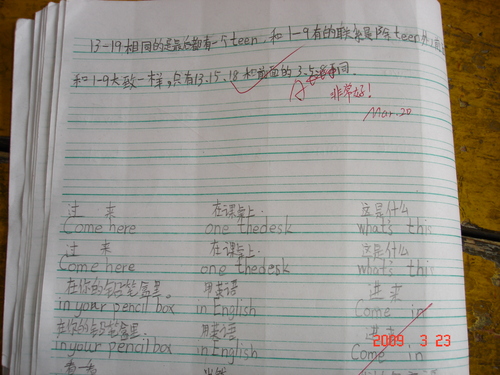 13-19相同的是最后都有一个teen, 和1-9有的联系是除teen外,
和1-9大致一样,只有13.15.18和前面的3.5.8不同.
A
非常好!
Mar.20
过 来 在课桌上. 这是什么
Come here one thedesk what's this
过 来 在课桌上. 这是什么
Come here one thedesk what's this
在你的铅笔盒里。 用英语 进 来
in your pencil box in English Come in
在你的铅笔盒里. 用英语 进来
in your pencil box in English Come in
2009. 3 23